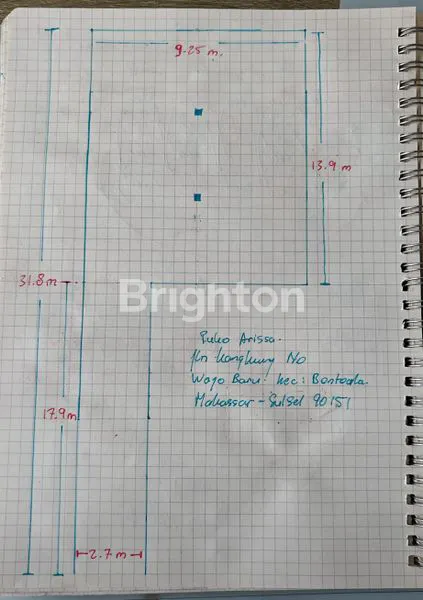 9.25 m.
13.9 m
31.8 m
Brighton
Ruko Arissa.
No
Wajo Baru. kec: Bontoala.
Makassar - SulSel 90151
17.9 m
2.7 m